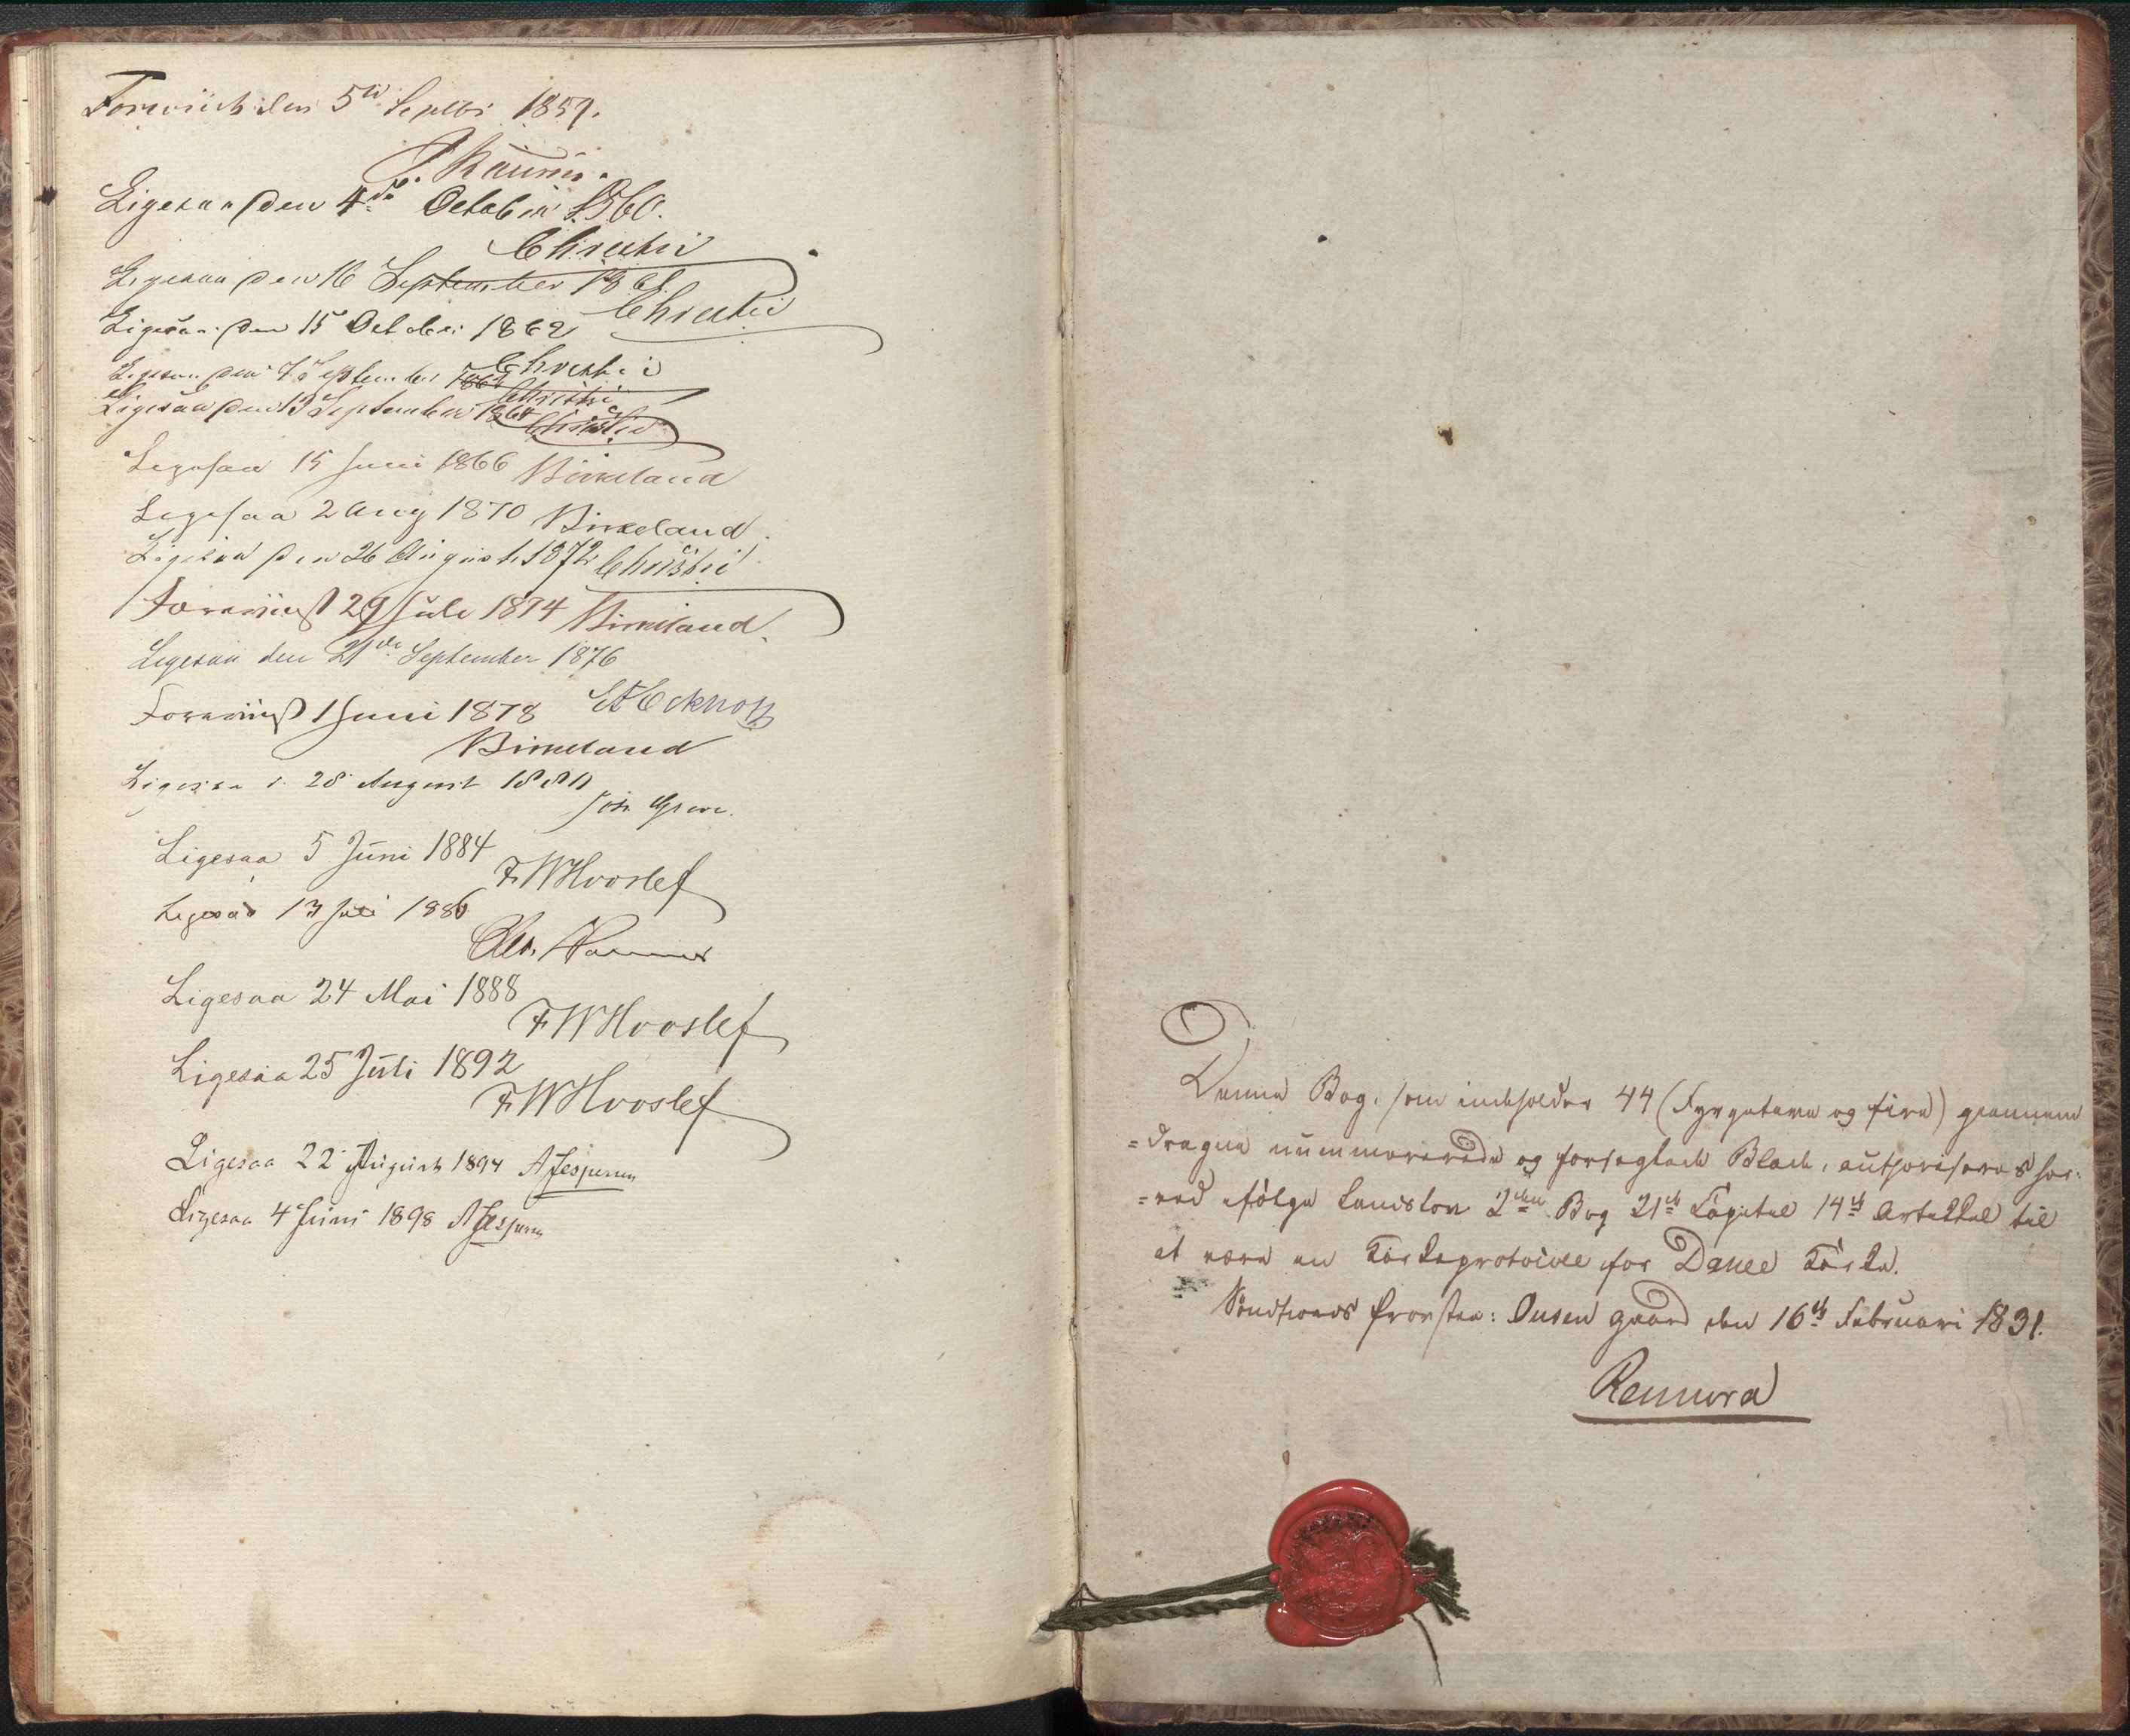 Foreviist den 5te Septbr 1859.
Ligesaa den 4de October 1860.
Christie
Ligesaa den 16 September 1861.
Christie
Ligesaa den 15 October 1862
Christie
Ligesaa den 7 September
Christie
Ligesaa den 13 September 1864
Christie
Ligesaa 15 Juni 1866 Birkeland
Ligesaa 2 Aug 1870 Birkeland.
Ligesaa den 26 August 1872 Christie
Foreviist 29 Juli 1874 Birkeland.
Ligesaa den 21de September 1876
Eckhoff
Foreviist 1 Juni 1878
Birkeland
Ligesaa d. 28 August
Joh Greve.
Ligesaa 5 Juni 1884
F. W Hvoslef
Ligesaa 13 Juli 1886
Ligesaa 24 Mai 1888
F W Hvoslef
Ligesaa 25 Juli 1892
F. W Hvoslef
Ligesaa 22 August 1894 A Jespersen
Ligesaa 4 Juni 1898 A Jespersen
Denne Bog, som indeholder 44 (Fyrgetyve og fire) giennem
=dragne nummererede og forseglede Blade, authoriseres her:
=ved ifølge Landslov 2den Bog 21de Capitel 14de Artikkel til
at være en Kirkeprotocoll for Dahle Kirke.
Søndfiords Provstie: gaard den 16de Februari 1831.
Rennord